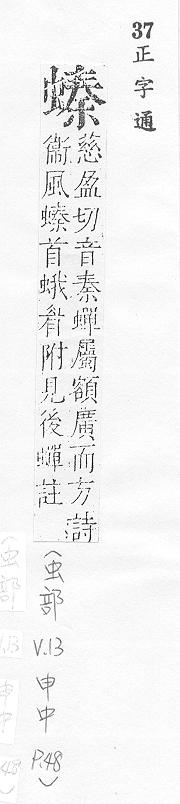 37
正字通
螓
慈盈切音秦蟬屬額廣而方詩
衞風螓首蛾眉附見後蟬註
(虫部
V.13
申中
P.48)